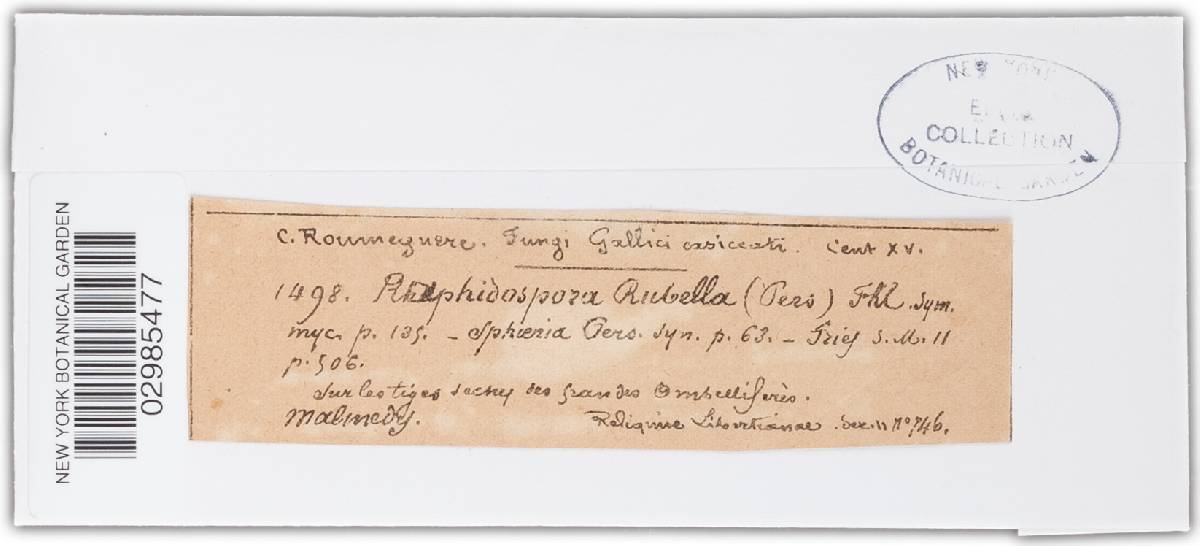 NEW YORK
COLLECTION
BOTANICAL GARDEN
NEW YORK BOTANICAL GARDEN
02985477
C. Roumeguere. Fungi Gallici exsiccati. Cent XV.
1498. Rhaphidospora Rubella (Pers) Fkl. Sym.
myc. p. 125. – Sphæria Pers. Syn. p. 63. – Fries S. M. II
p. 506.
Sur les tiges seches des grandes Ombellifères.
Malmedy.
Reliquiæ Libertianae. Ser. II No 746.